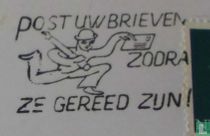 POST UW BRIEVEN
ZODRA
ZE GEREED ZIJN!